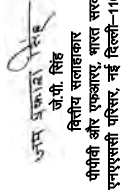 जय प्रकाश सिंह
जे.पी. सिंह
वित्तीय सलाहकार
पीपीवी और एफआरए, भारत सर
एनएएससी परिसर, नई दिल्ली–11